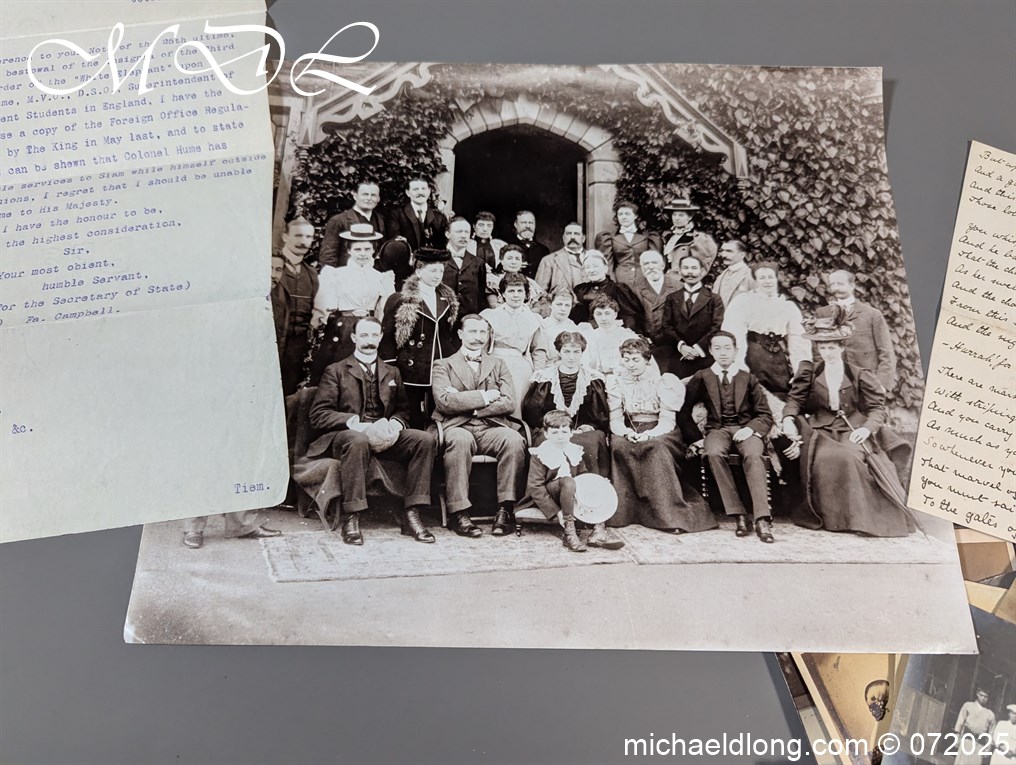 MDL
erence to your Note of the 25th ultimo,
bestowal of the Insignia of the Third
rder of the "White Elephant" upon
me, M.V.O., D.S.O., Superintendent of
ent Students in England, I have the
se a copy of the Foreign Office Regula-
by The King in May last, and to state
can be shewn that Colonel Hume has
le services to Siam while himself outside
nions, I regret that I should be unable
me to His Majesty.
I have the honour to be,
the highest consideration,
Sir,
Your most obient,
humble Servant,
for the Secretary of State)
Fa. Campbell.
&c.
Tiem.
But
And a
And
Those
you
And he
That the
As her
From this
And the
- Hurrah! for
There are
With striping
And you carry
As much as
So whenever you
That marvel of
You must
To the gales
michaeldlong.com © 072025